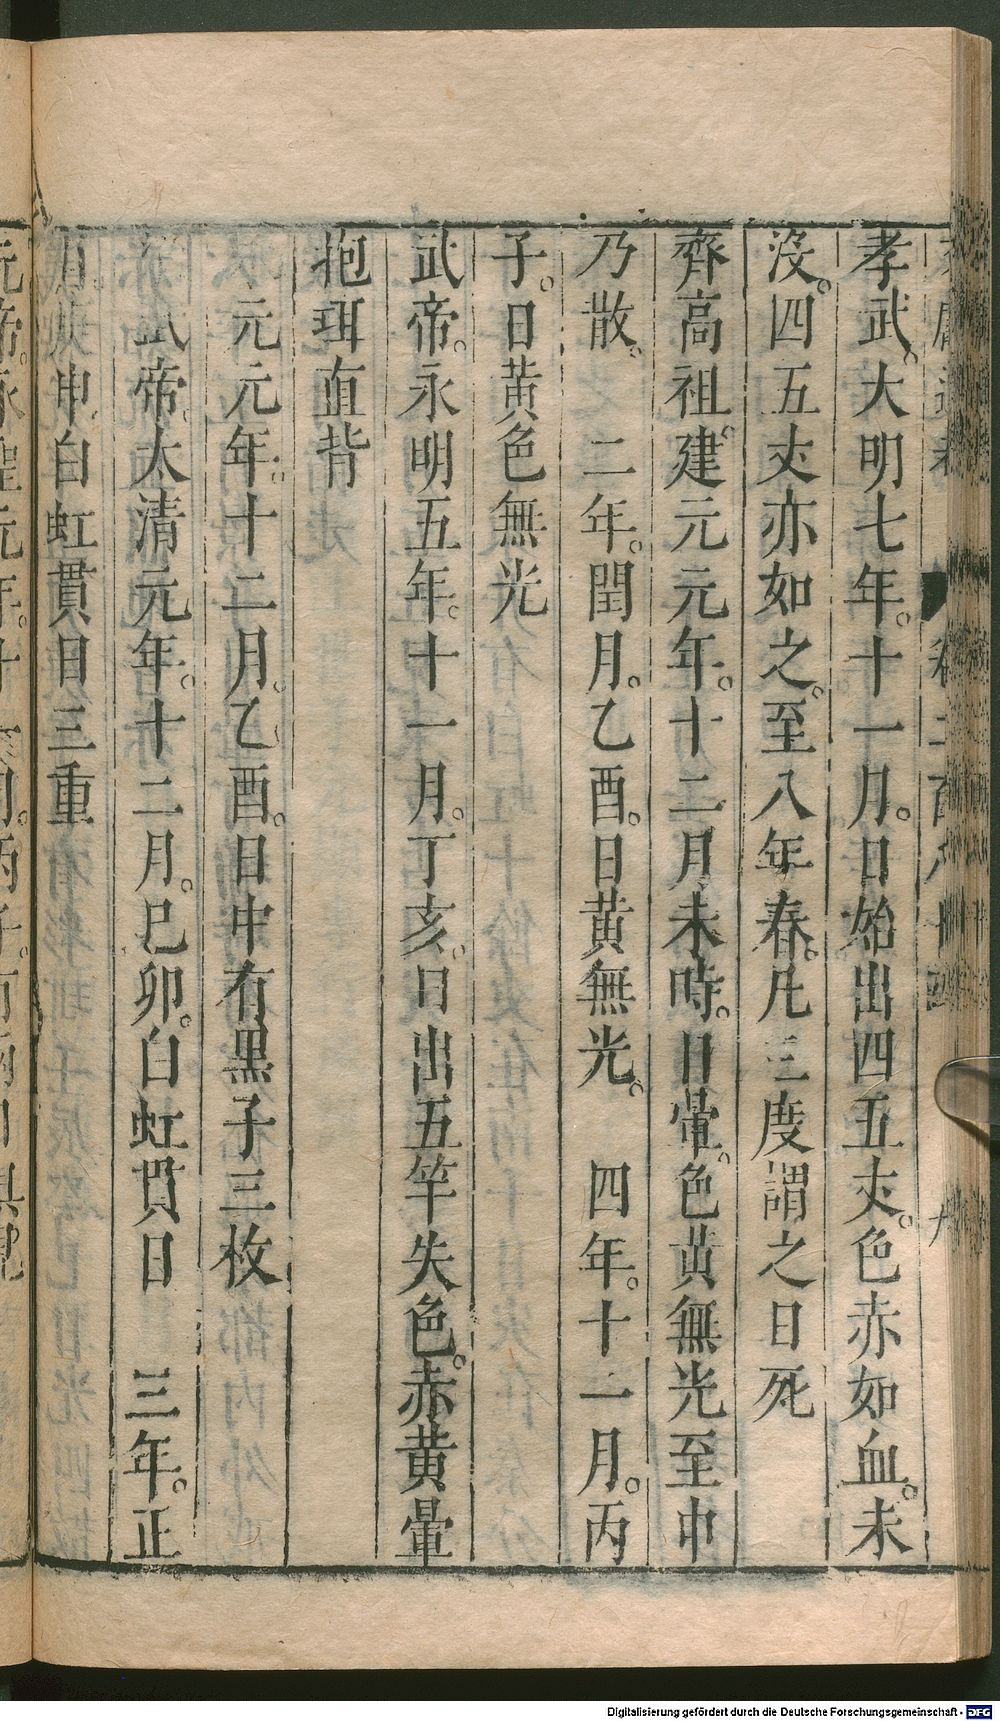 孝武。大明七年。十一月。日始出四五𠀋。色赤如血。未
沒。四五𠀋亦如之。至八年春。凡三度謂之日死
齊高祖。建元元年。十二月未時。日暈。色黃無光至申
乃散。 二年。閏月。乙酉。日黃無光。 四年。十一月。丙
子。日黃色無光
武帝。永明五年。十一月。丁亥。日出五竿失色。赤黃暈
抱珥直背
元元年。十二月。乙酉。日中有黑子三枚
武帝。太清元年。十二月。巳卯。白虹貫日 三年。正
月申。白虹貫日三重
元帝。
Digitalisierung gefördert durch die Deutsche Forschungsgemeinschaft - DFG